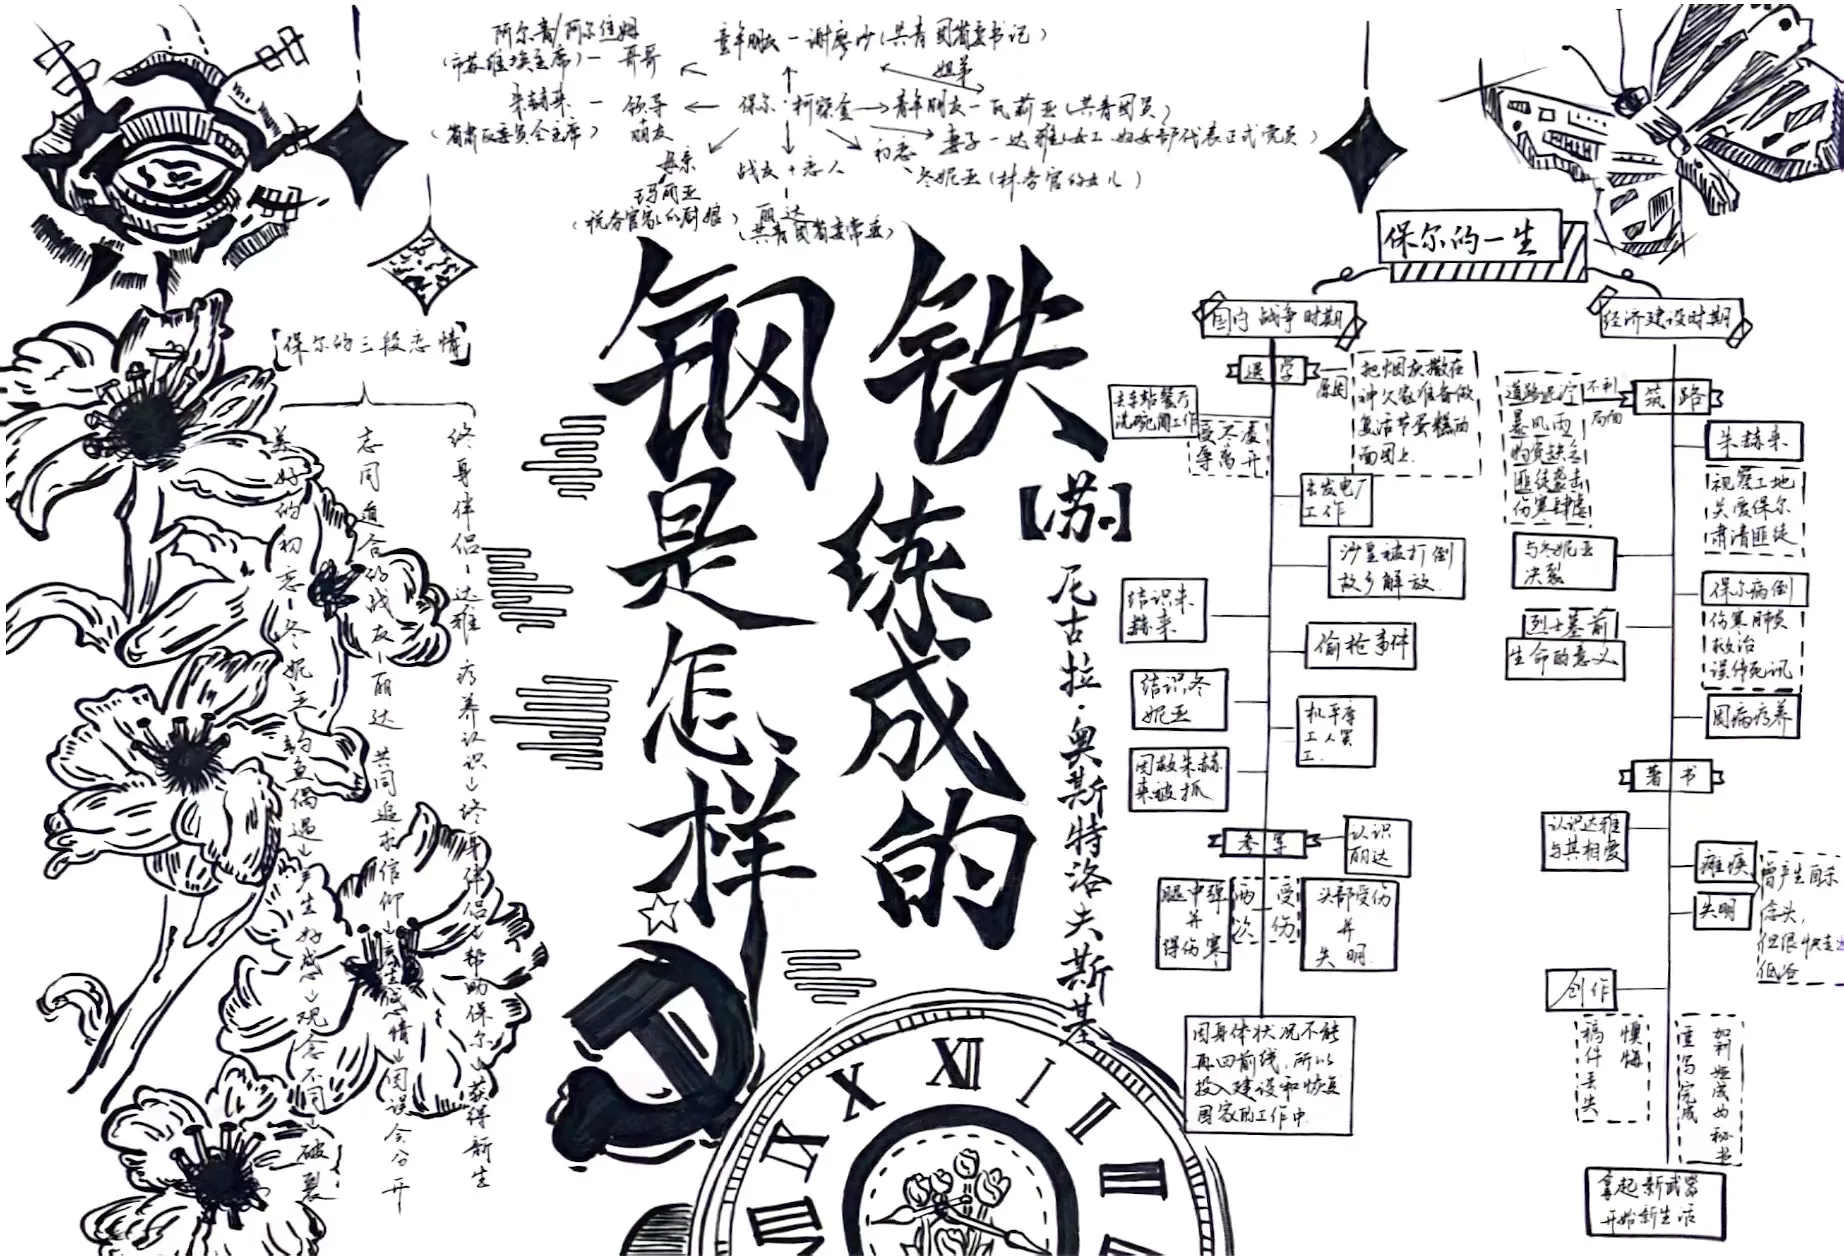 童年朋友-谢廖沙(共青团省委书记)
(市苏维埃主席)-哥哥
姐弟
朱赫来 - 领导
朋友
(省肃反委员会主席)
保尔·柯察金
青年朋友-瓦莉亚(共青团员)
妻子-达雅(女工 妇女部代表正式党员)
初恋
冬妮亚(林务官的女儿)
母亲
玛丽亚
(税务官家的厨娘)
战友+恋人
丽达
(共青团省委常委)
钢铁
是练
怎成
样的
【苏】
尼古拉·奥斯特洛夫斯基
【保尔的三段恋情】
美好的初恋-冬妮亚 钓鱼偶遇→产生好感→观念不同→破裂
志同道合的战友-丽达 共同追求信仰→产生感情→因误会分开
终身伴侣-达雅-疗养认识→终身伴侣→帮助保尔→获得新生
保尔的一生
国内战争时期
退学
原因
把烟灰撒在
神父家准备做
复活节蛋糕的
面团上.
去车站餐厅
洗碗间工作
受不
辱离开
去发电厂
工作
沙皇被打倒
故乡解放.
结识朱
赫来
偷枪事件
结识冬
妮亚
机车库
工人罢
工.
因救朱赫
来被抓
参军
认识
丽达
两次受伤
腿中弹
并
得伤寒
头部受伤
并
失明.
因身体状况不能
再回前线,所以
投入建设和恢复
国家的工作中.
经济建设时期
筑路
不利
局面
道路泥泞
暴风雨
物资缺乏
匪徒袭击
伤寒肆虐
朱赫来
视察工地
关爱保尔
肃清匪徒
与冬妮亚
决裂
保尔病倒
伤寒肺炎
救治
误传死讯
烈士墓前
生命的意义
因病疗养
著书
认识达雅
与其相爱
瘫痪
失明
曾产生自杀
念头,
但很快走出
低谷
创作
稿件丢失
懊悔
重写完成
加利娅成为秘书
拿起新武器
开始新生活
X
XII
I
II
IX
III